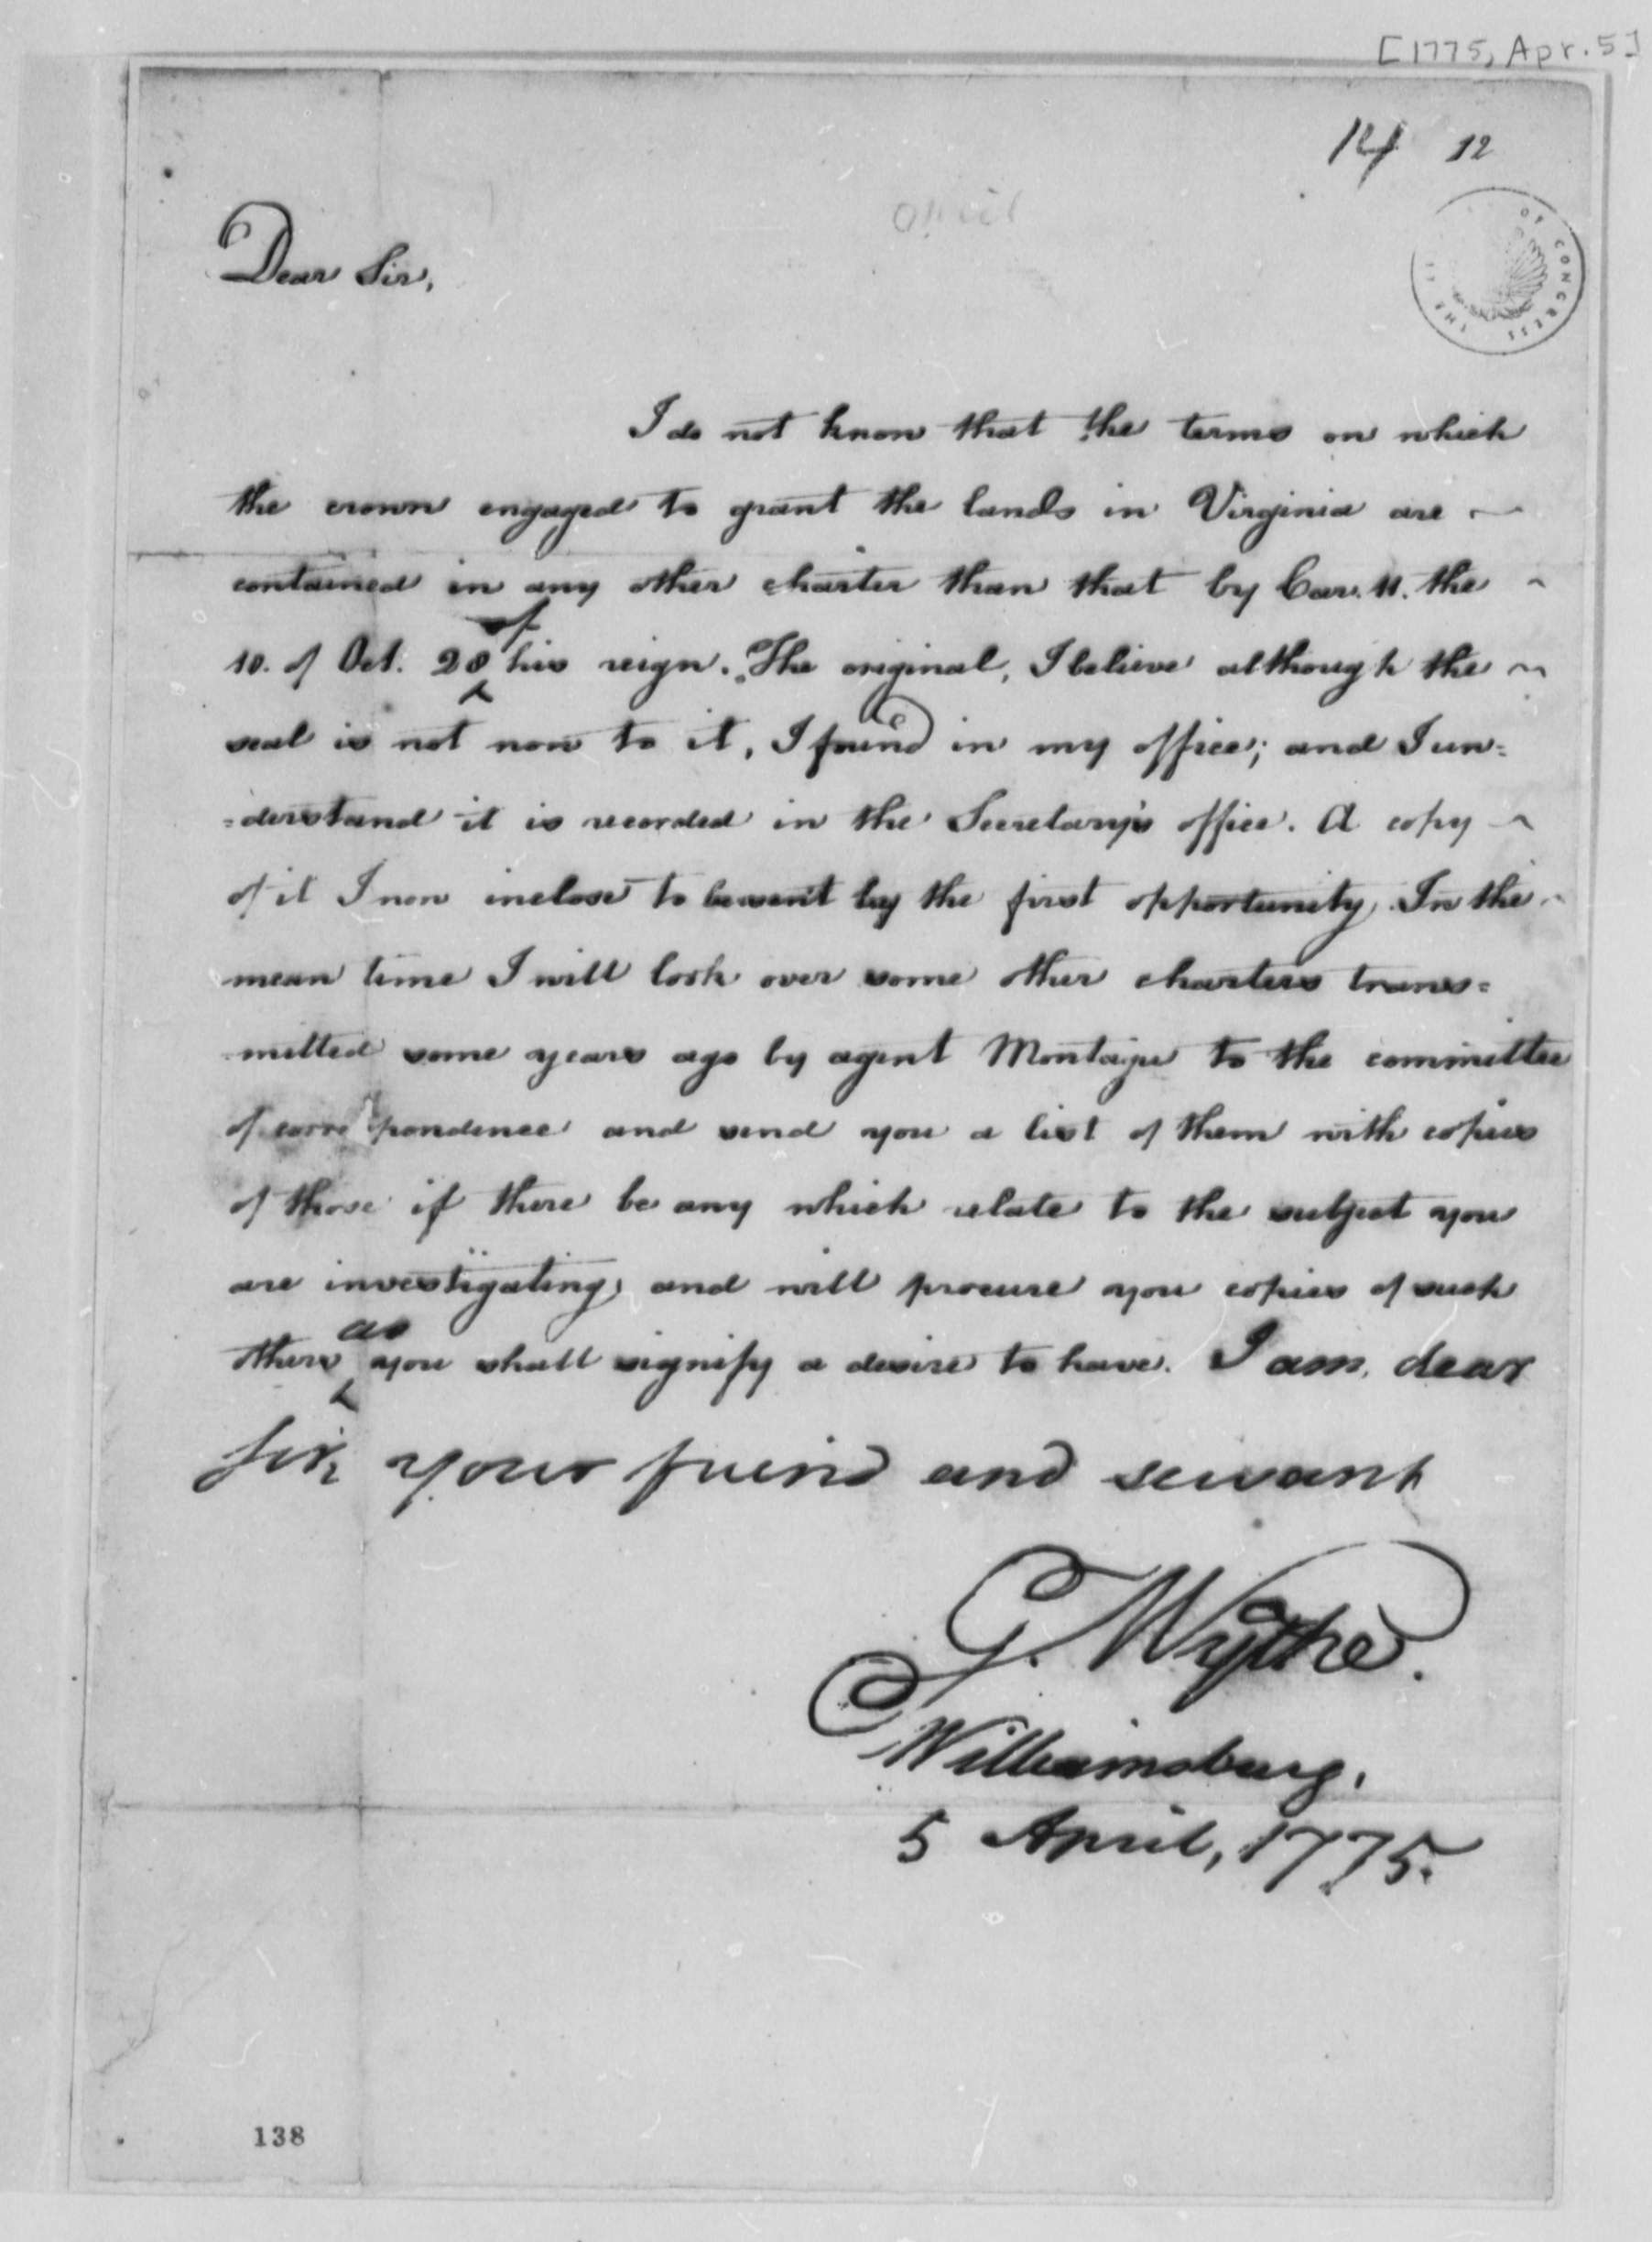 [1775, Apr. 5]
14 12
OF CONGRESS
THE
Dear Sir,
I do not know that the terms on which
the crown engaged to grant the lands in Virginia are
contained in any other charter than that by Car. II. the
of
10. of Oct. 28 his reign. The original, I believe although the
seal is not now to it, I found in my office; and I un=
=derstand it is recorded in the Secretary's office. A copy
of it I now inclose to be sent by the first opportunity. In the
mean time I will look over some other charters trans=
mitted some years ago by agent Montague to the committee
of correspondence and send you a list of them with copies
of those if there be any which relate to the subject you
are investigating, and will procure you copies of such
as
others you shall signify a desire to have. I am, dear
sir, your friend and servant
G. Wythe.
Williamsburg,
5 April, 1775.
138